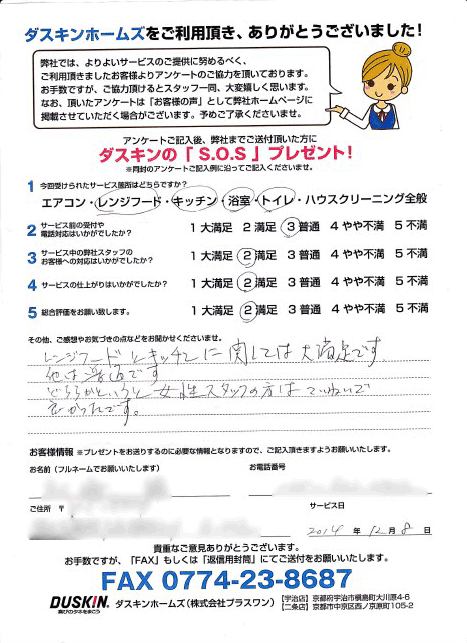 ダスキンホームズをご利用頂き、ありがとうございました!
弊社では、よりよいサービスのご提供に努めるべく、
ご利用頂きましたお客様よりアンケートのご協力を頂いております。
お手数ですが、ご協力頂けるとスタッフ一同、大変嬉しく思います。
なお、頂いたアンケートは「お客様の声」として弊社ホームページに
掲載させていただく場合がございます。予めご了承くださいませ。
アンケートご記入後、弊社までご送付頂いた方に
ダスキンの「 S.O.S 」プレゼント!
※同封のアンケートご記入例に沿ってご記入くださいませ。
1 今回受けられたサービス箇所はどちらですか?
エアコン・レンジフード・キッチン・浴室・トイレ・ハウスクリーニング全般
2 サービス前の受付や
電話対応はいかがでしたか? 1 大満足 2 満足 3 普通 4 やや不満 5 不満
3 サービス中の弊社スタッフの
お客様への対応はいかがでしたか? 1 大満足 2 満足 3 普通 4 やや不満 5 不満
4 サービスの仕上がりはいかがでしたか? 1 大満足 2 満足 3 普通 4 やや不満 5 不満
5 総合評価をお願い致します。 1 大満足 2 満足 3 普通 4 やや不満 5 不満
その他、ご感想やお気づきの点などをお聞かせくださいませ。
レンジフードとキッチンに関しては大満足です
他は普通です
どちらかというと女性スタッフの方はていねいで
良かったです。
お客様情報 ※プレゼントをお送りするのに必要な情報となりますので、ご記入頂きますようお願いいたします。
お名前(フルネームでお願いいたします) お電話番号
ご住所 〒 サービス日
2014 年 12 月 8 日
貴重なご意見ありがとうございます。
お手数ですが、「FAX」もしくは「返信用封筒」にてご送付をお願いいたします。
FAX 0774-23-8687
DUSKIN 喜びのタネをまこう ダスキンホームズ(株式会社プラスワン) 【宇治店】京都府宇治市槇島町大川原4-6
【二条店】京都市中京区西ノ京原町105-2